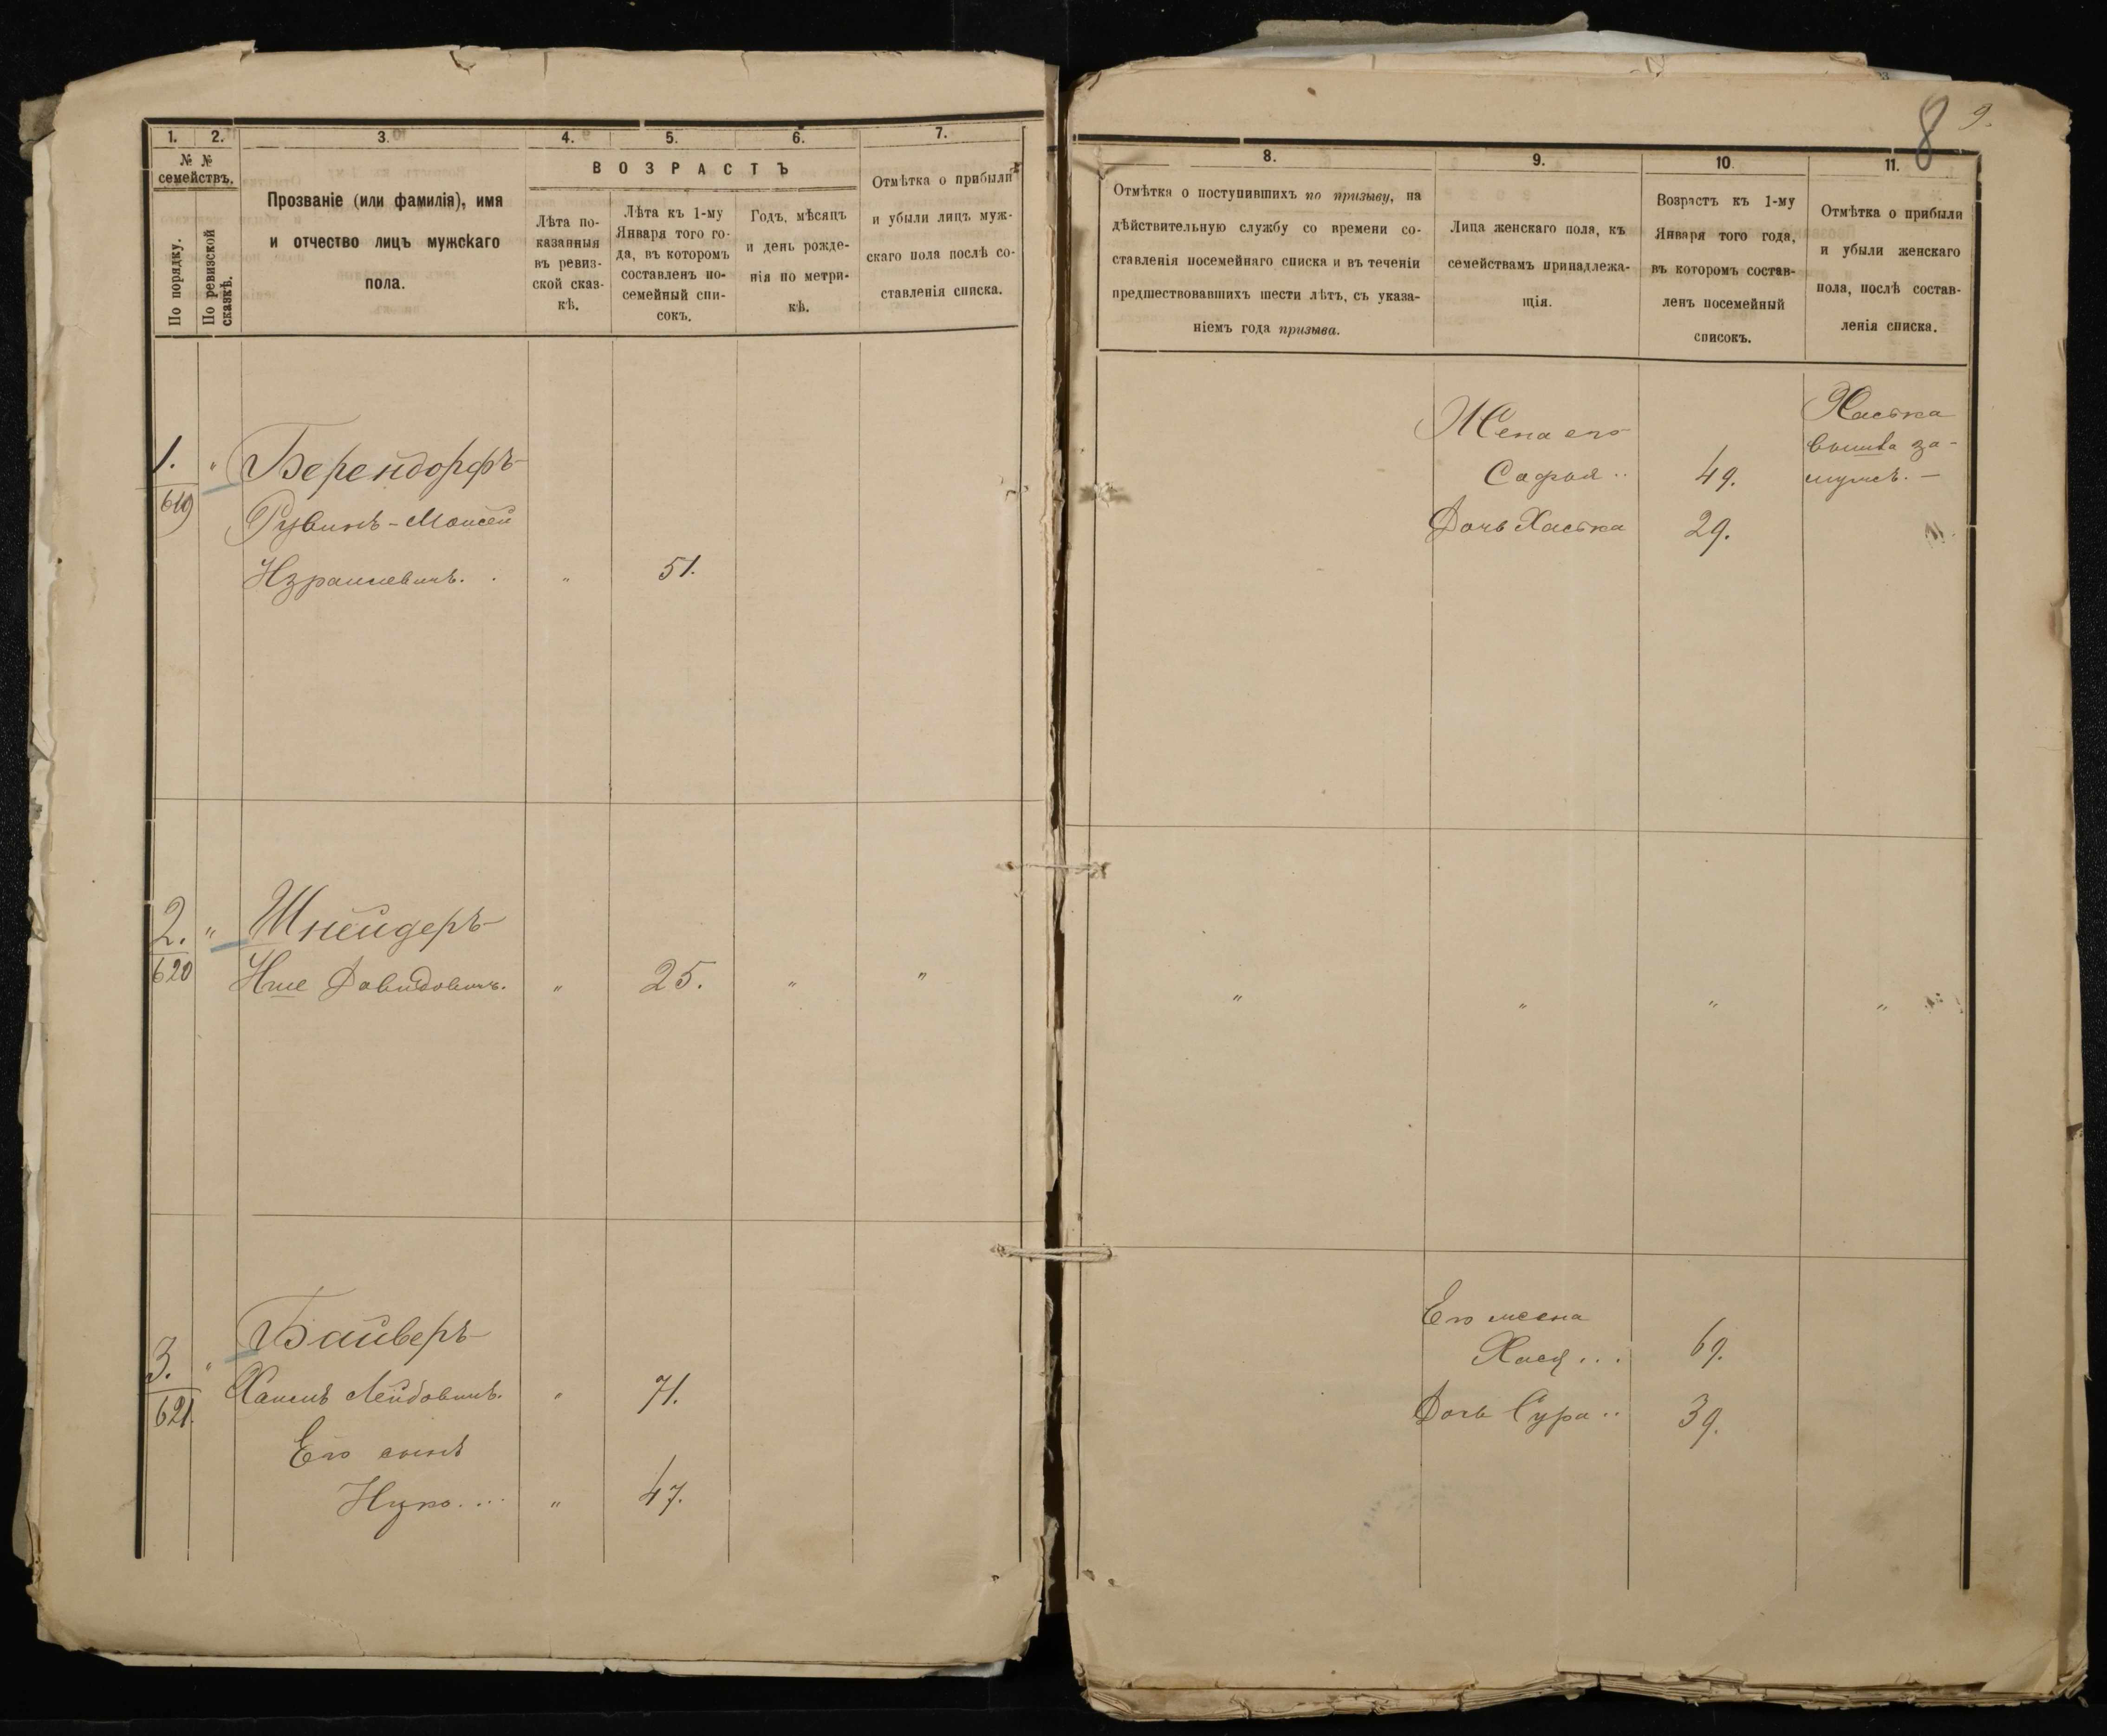 8 9.
1. 2. 3. 4. 5. 6. 7.
№ № семействъ.
По порядку.
По ревизской сказкѣ.
Прозваніе (или фамилія), имя
и отчество лицъ мужскаго
пола.
ВОЗРАСТЪ
Лѣта по-
казанныя
въ ревиз-
ской сказ-
кѣ.
Лѣта къ 1-му
Января того го-
да, въ которомъ
составленъ по-
семейный спи-
сокъ.
Годъ, мѣсяцъ
и день рожде-
нія по метри-
кѣ.
Отмѣтка о прибыли
и убыли лицъ муж-
скаго пола послѣ со-
ставленія списка.
1. "
619
Берендорфъ
Рувинъ-Моисей
Израилевичъ. . " 51.
2. "
620
Шнейдеръ
Ише Давидовичъ. " 25. " "
3. "
621.
Байверъ
Хаимъ Лейбовичъ. " 71.
Его сынъ
Ицко. ... " 47.
8. 9. 10. 11.
Отмѣтка о поступившихъ по призыву, на
дѣйствительную службу со времени со-
ставленія посемейнаго списка и въ теченіи
предшествовавшихъ шести лѣтъ, съ указа-
ніемъ года призыва.
Лица женскаго пола, къ
семействамъ принадлежа-
щія.
Возрастъ къ 1-му
Января того года,
въ которомъ состав-
ленъ посемейный
списокъ.
Отмѣтка о прибыли
и убыли женскаго
пола, послѣ состав-
ленія списка.
Жена его
Софья .. 49.
Дочь Хаська 29.
Хаська
вышла за-
мужъ. —
" " " "
Его жена
Хася ... 69.
Дочь Сура .. 39.